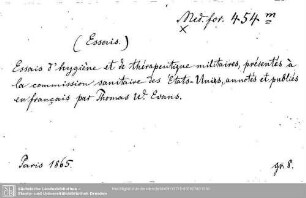 Med. for. 454 m
x
(Essais.)
Essais d'hygiène et de thérapeutique militaires, présentés à
la commission sanitaire des Etats-Uniss, annotés et publiés
en français par Thomas W. Evans.
Paris 1865.
gr. 8.
Sächsische Landesbibliothek -
Staats- und Universitätsbibliothek Dresden